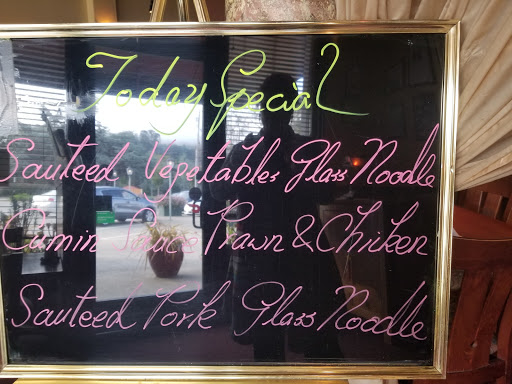 Today Special
Sauteed Vegetables Glass Noodle
Cumin Sauce Prawn & Chicken
Sauteed Pork Glass Noodle